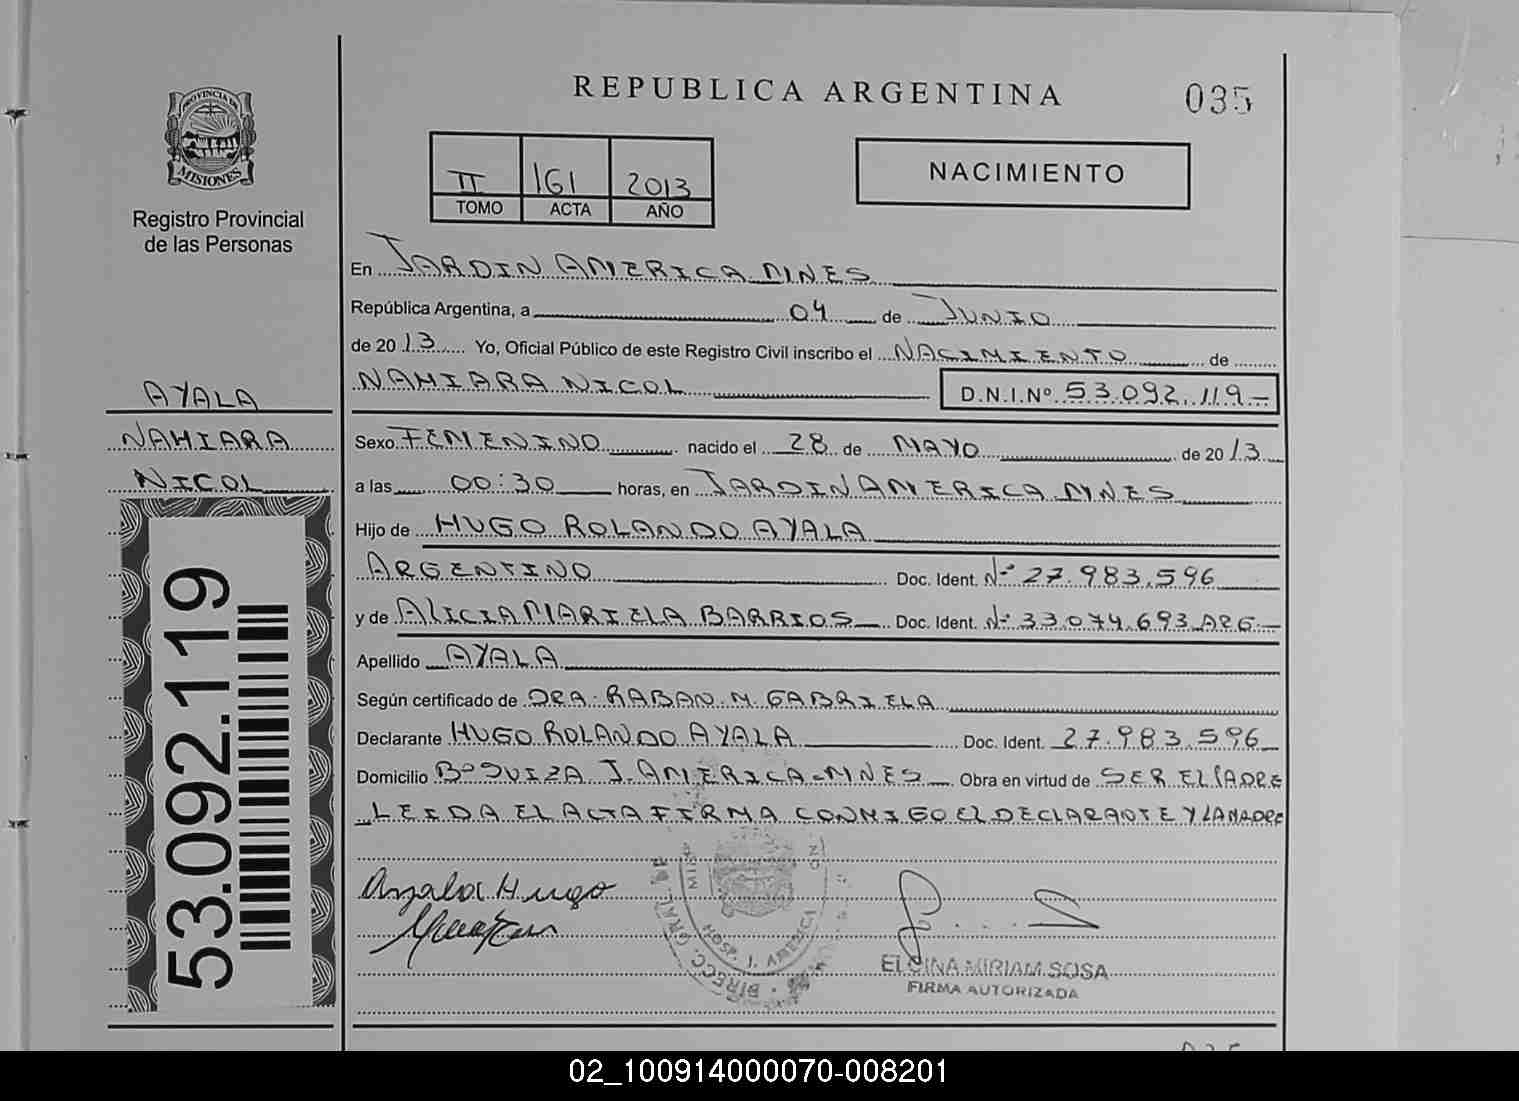 REPUBLICA ARGENTINA
035
PROVINCIA DE
MISIONES
Registro Provincial
de las Personas
II 161 2013
TOMO ACTA AÑO
NACIMIENTO
En JARDIN AMERICA MNES
República Argentina, a 04 de JUNIO
de 2013 Yo, Oficial Público de este Registro Civil inscribo el NACIMIENTO de
NAHIARA NICOL D.N.I.Nº 53.092.119-
AYALA
NAHIARA
NICOL
Sexo FEMENINO nacido el 28 de MAYO de 2013
a las 00:30 horas, en JARDIN AMERICA MNES
Hijo de HUGO ROLANDO AYALA
ARGENTINO Doc. Ident. Nº 27.983.596
y de ALICIA MARIELA BARRIOS Doc. Ident. Nº 33.074.693 ARG-
Apellido AYALA
Según certificado de DRA. RABAN M. GABRIELA
Declarante HUGO ROLANDO AYALA Doc. Ident. 27.983.596
Domicilio Bº SUIZA J. AMERICA-MNES Obra en virtud de SER EL PADRE
LEIDA EL ACTA FIRMA CONMIGO EL DECLARANTE Y LA MADRE
53.092.119
Ayala Hugo
DIRECC. GRAL. DE
HOSP. J. AMERICA
MIRIAM SOSA
FIRMA AUTORIZADA
02_100914000070-008201